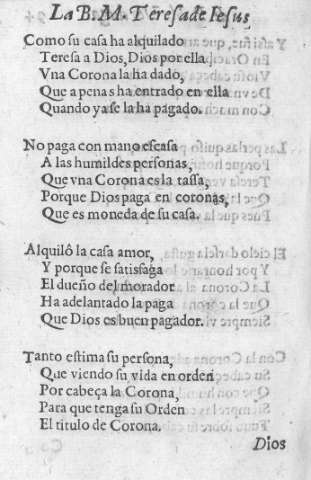 La B. M. Teresa de Iesus
Como su casa ha alquilado
Teresa a Dios, Dios por ella
Vna Corona la ha dado,
Que a penas ha entrado en ella
Quando ya se la ha pagado.
No paga con mano escasa
A las humildes personas,
Que vna Corona es la tassa,
Porque Dios paga en coronas,
Que es moneda de su casa.
Alquilô la casa amor,
Y porque se satisfaga
El dueño del morador
Ha adelantado la paga
Que Dios es buen pagador.
Tanto estima su persona,
Que viendo su vida en orden
Por cabeça la Corona,
Para que tenga su Orden
El titulo de Corona.
Dios